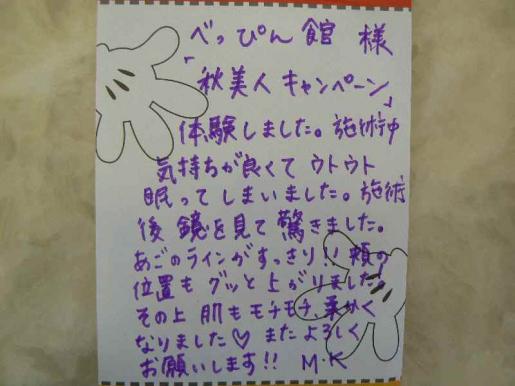 べっぴん館 様
「秋美人 キャンペーン」
体験しました。施術中
気持ちが良くて ウトウト
眠ってしまいました。施術
後 鏡を見て 驚きました。
あごのラインがすっきり!! 頬の
位置も グッと上がりました。
その上 肌も モチモチ、柔かく
なりました♡ またよろしく
お願いします!! M・K